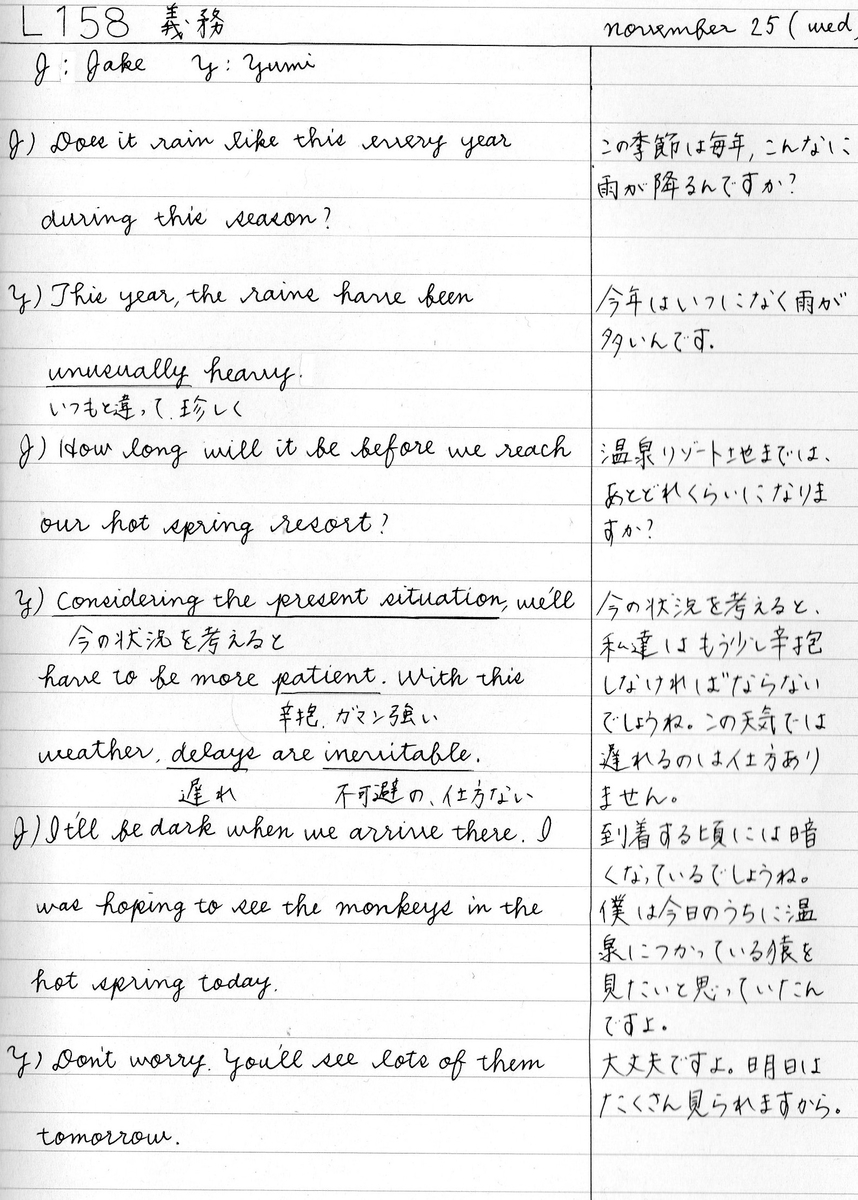 L158 義務
november 25 (wed)
J : Jake Y : Yumi
J) Does it rain like this every year
during this season?
この季節は毎年, こんなに
雨が降るんですか?
Y) This year, the rains have been
unusually heavy.
いつもと違って, 珍しく
今年はいつになく雨が
多いんです.
J) How long will it be before we reach
our hot spring resort?
温泉リゾート地までは、
あとどれくらいになりま
すか?
Y) Considering the present situation, we'll
今の状況を考えると
have to be more patient. With this
辛抱, ガマン強い
weather, delays are inevitable.
遅れ 不可避の、仕方ない
今の状況を考えると、
私達はもう少し辛抱
しなければならない
でしょうね。この天気では
遅れるのは仕方あり
ません。
J) It'll be dark when we arrive there. I
was hoping to see the monkeys in the
hot spring today.
到着する頃には暗
くなっているでしょうね。
僕は今日のうちに温
泉につかっている猿を
見たいと思っていたん
ですよ。
Y) Don't worry. You'll see lots of them
tomorrow.
大丈夫ですよ。明日は
たくさん見られますから。